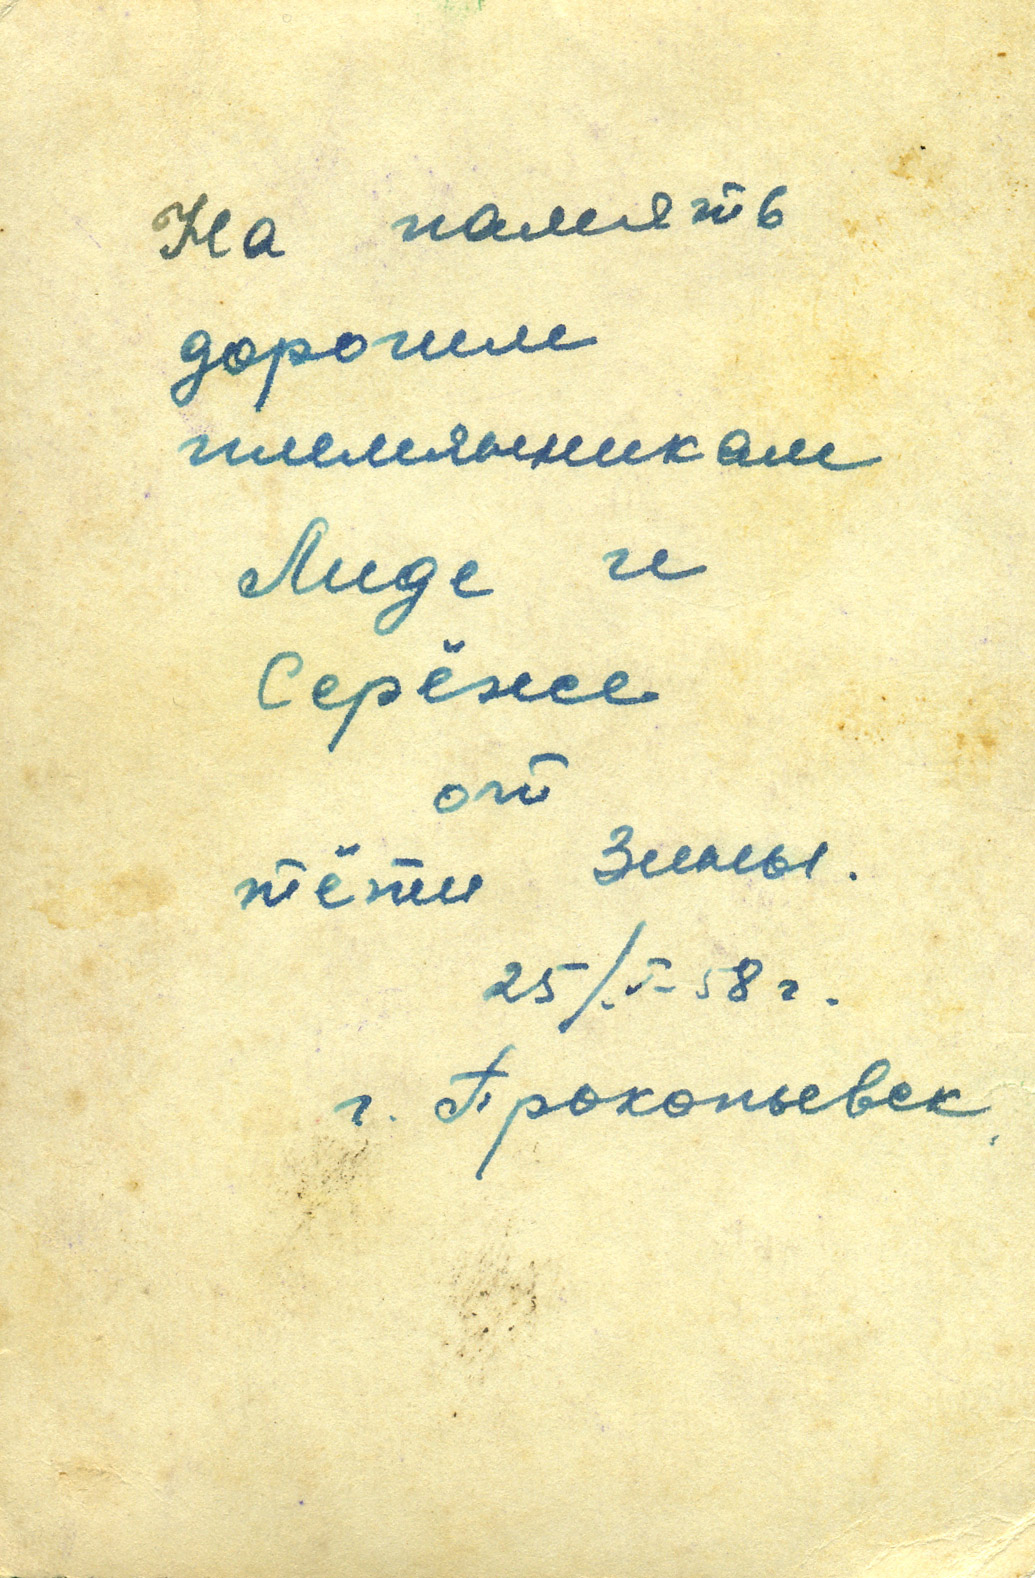 На память
дорогим
племянникам
Лиде и
Серёже
от
тёти Зины.
25/I-58 г.
г. Прокопьевск.